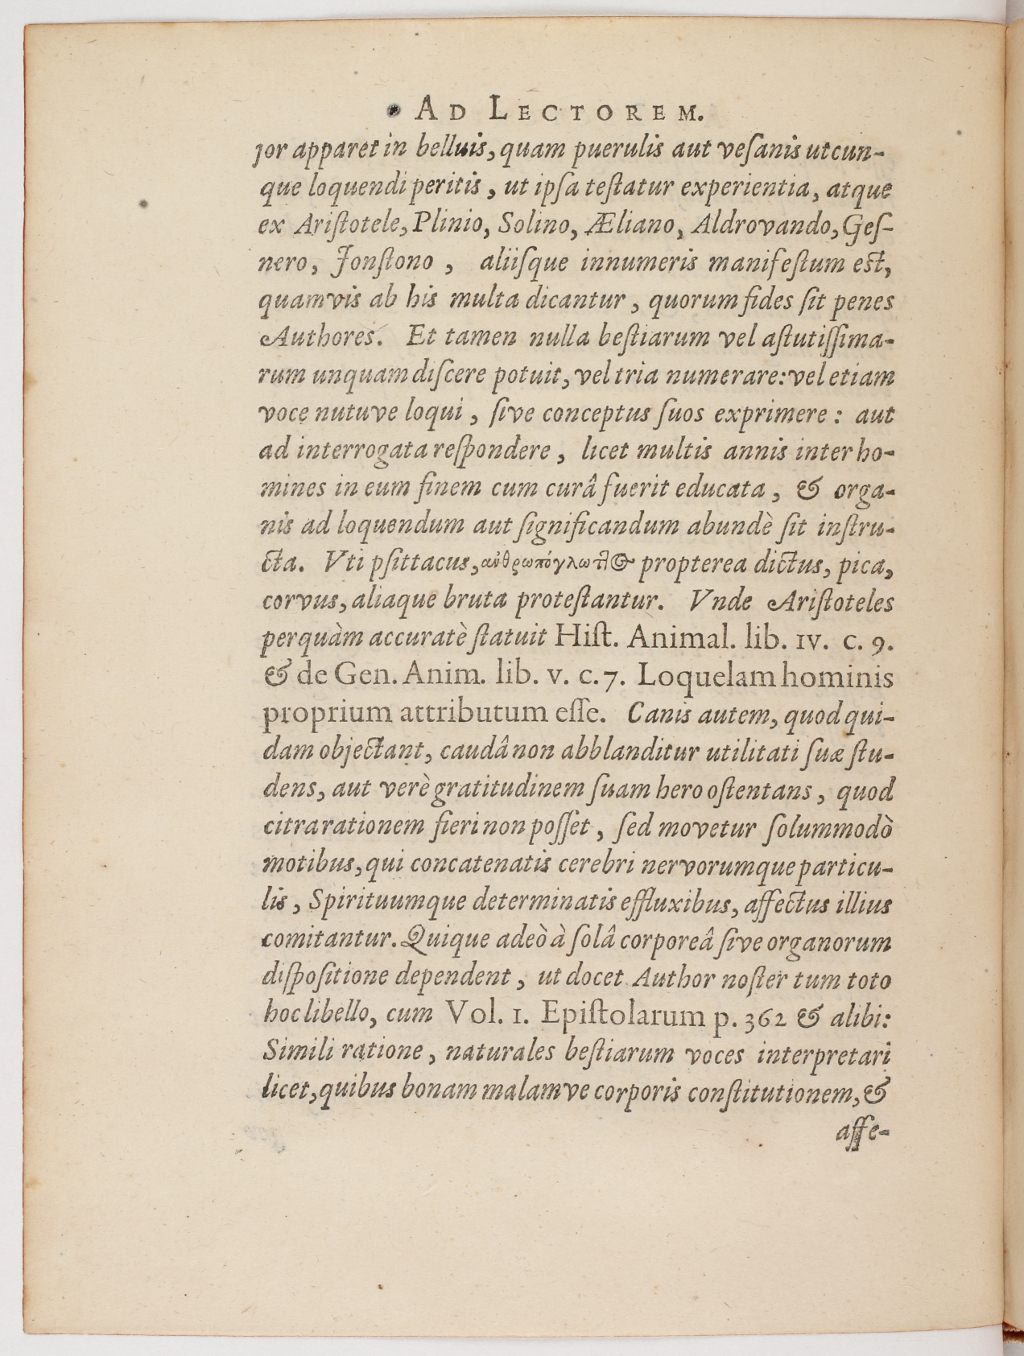 AD LECTOREM.
jor apparet in belluis, quam puerulis aut veſanis utcun-
que loquendi peritis, ut ipſa teſtatur experientia, atque
ex Ariſtotele, Plinio, Solino, Æliano, Aldrovando, Geſ-
nero, Jonſtono, aliiſque innumeris manifeſtum est,
quamvis ab his multa dicantur, quorum fides ſit penes
Authores. Et tamen nulla beſtiarum vel aſtutiſſima-
rum unquam diſcere potuit, vel tria numerare: vel etiam
voce nutuve loqui, ſive conceptus ſuos exprimere: aut
ad interrogata reſpondere, licet multis annis inter ho-
mines in eum finem cum curâ fuerit educata, & orga-
nis ad loquendum aut ſignificandum abundè ſit inſtru-
cta. Vti pſittacus, ανθρωπόγλωτ]ος propterea dictus, pica,
corvus, aliaque bruta proteſtantur. Vnde Ariſtoteles
perquàm accuratè ſtatuit Hiſt. Animal. lib. IV. c. 9.
& de Gen. Anim. lib. V. c. 7. Loquelam hominis
proprium attributum eſſe. Canis autem, quod qui-
dam objectant, caudâ non abblanditur utilitati ſuæ ſtu-
dens, aut verè gratitudinem ſuam hero oſtentans, quod
citra rationem fieri non poſſet, ſed movetur ſolummodò
motibus, qui concatenatis cerebri nervorumque particu-
lis, Spirituumque determinatis effluxibus, affectus illius
comitantur. Quique adeò à ſolâ corporeâ ſive organorum
diſpoſitione dependent, ut docet Author noſter tum toto
hoc libello, cum Vol. I. Epiſtolarum p. 362 & alibi:
Simili ratione, naturales beſtiarum voces interpretari
licet, quibus bonam malamve corporis conſtitutionem, &
affe-